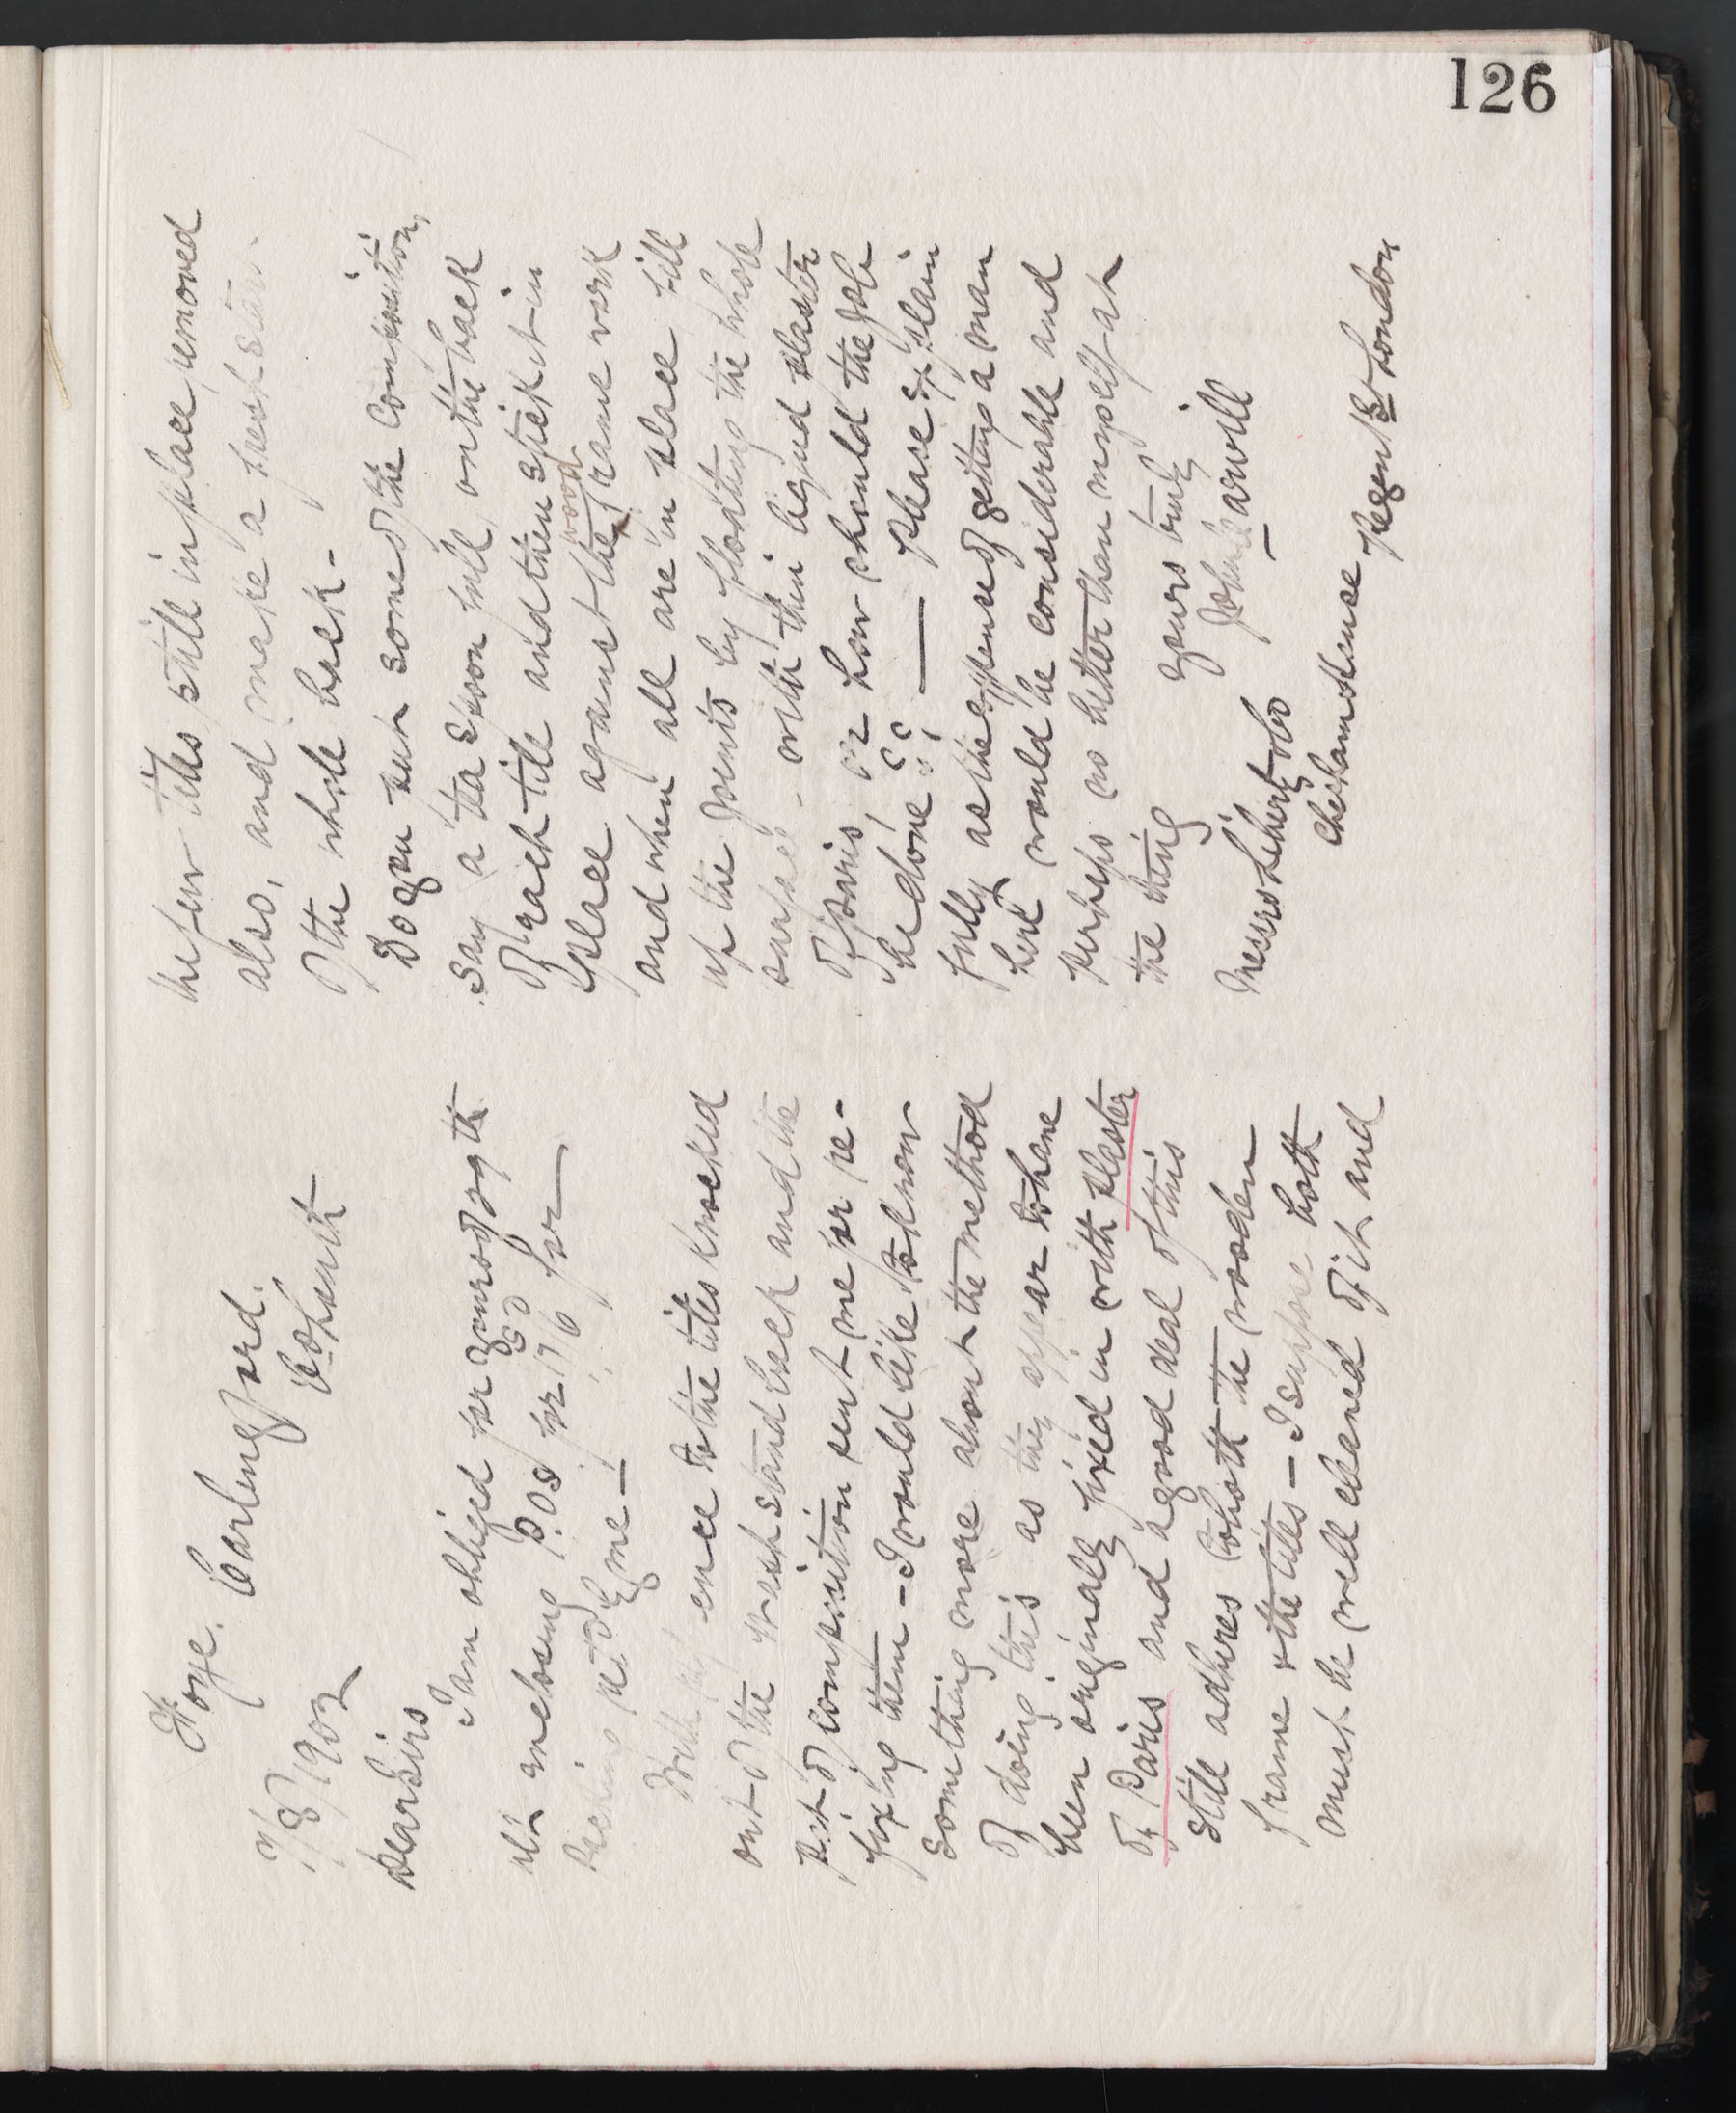 126
Foye. Carlingford.
Co Louth
7/8/1902
Dear Sirs
I am obliged for yours of 29th
ult enclosing P.O.s for 17/6 for
me —
With ence to the tiles knocked
out of the wash stand back and the
pkt of composition sent me for re-
fixing them – I would like to know
something more about the method
of doing this as they appear to have
been originally fixed in with plaster
of Paris and a good deal of this
still adheres to both the wooden
frame & the tiles – I suppose both
must be well cleaned of it and
the few tiles still in place removed
also, and make a fresh start
of the whole back –
Do you put some of the composition,
say a tea spoon full, on the back
of each tile and then stick it in
place against the wood frame work
and when all are in place fill
up the joints by floating the whole
surface – with thin liquid plaster
of Paris, or how should the job
be done ?? — Please explain
fully as the expense of getting a man
here would be considerable and
perhaps no better than myself at
the thing
Yours truly
John Garvill
Messrs Liberty & Co
Chesham House Regent St London